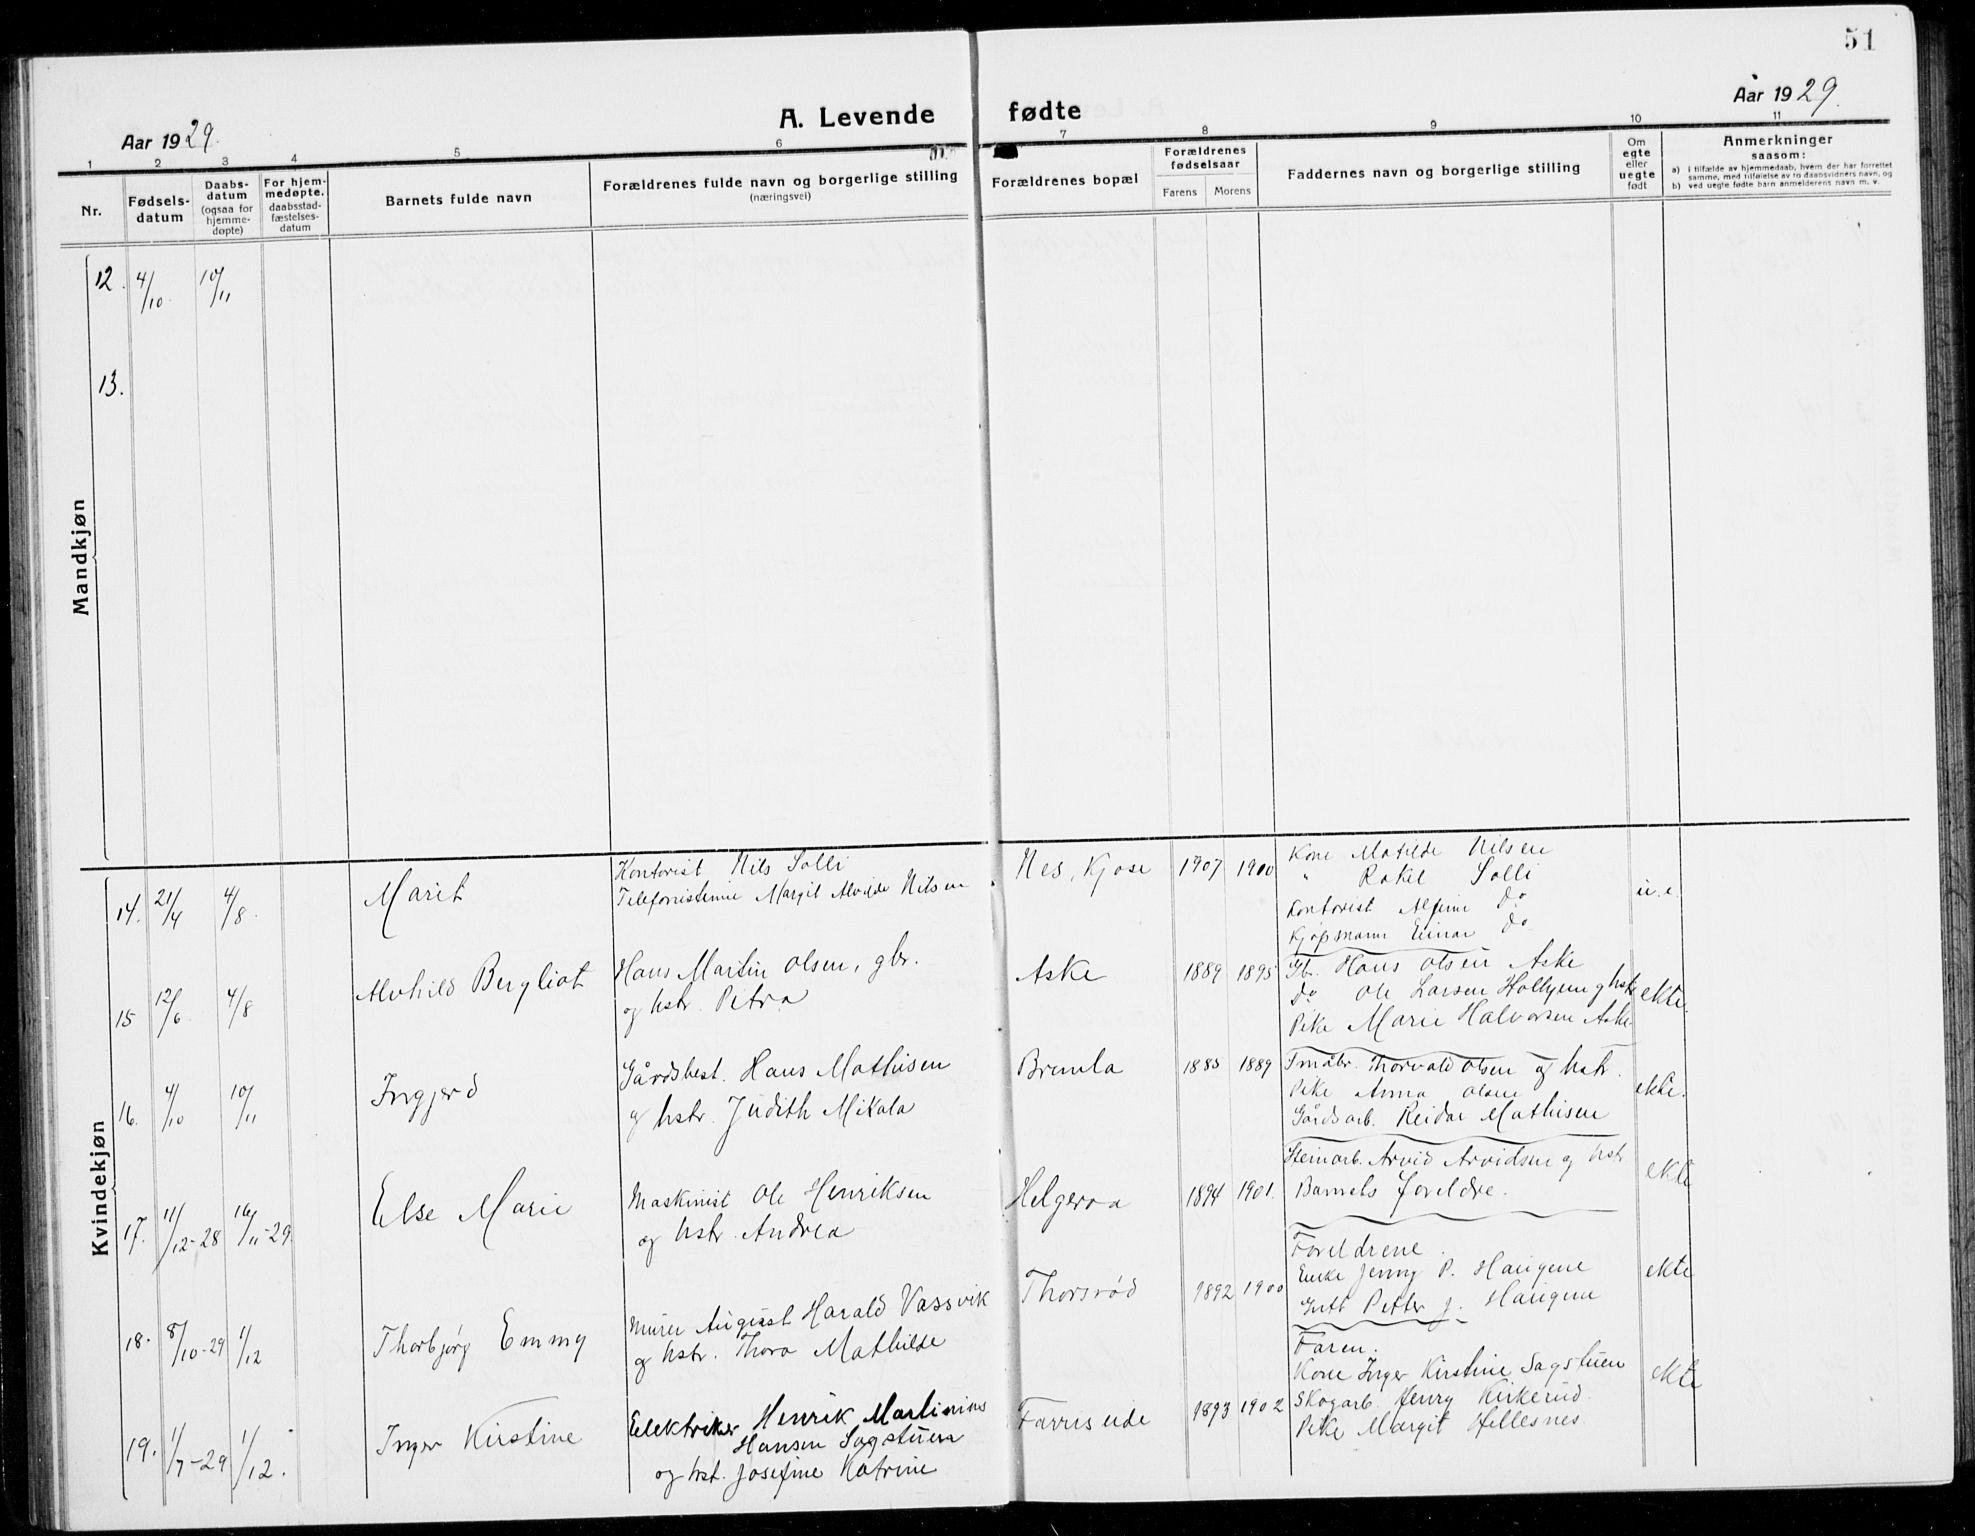 51
A. Levende fødte
Aar 1929.
Aar 1929.
1 2 3 4 5 6 7 8 9 10 11
Nr.
Fødsels-
datum
Daabs-
datum
(ogsaa for
hjemme-
døpte)
For hjem-
medøpte.
daabsstad-
fæstelses-
datum
Barnets fulde navn
Forældrenes fulde navn og borgerlige stilling
(næringsvei)
Forældrenes bopæl
Forældrenes
fødselsaar
Farens Morens
Faddernes navn og borgerlige stilling
Om
egte
eller
uegte
født
Anmerkninger
saasom:
a) i tilfælde av hjemmedaab, hvem der har forrettet
samme, med tilføielse av to daapsvidners navn, og
b) ved uegte fødte barn anmelderens navn m. v.
Mandkjøn
12. 4/10. 10/11
13.
Kvindekjøn
14. 21/4 4/8.
Marit
Kontorist Nils Solli
Telefonistinne Margit Alvilde Nilsen
Nes, Kjose 1907 1900
Kone Matilde Nilsen
" Rakel Solli
Kontorist Do
Kjøpmann Einar Do
u.e.
15 12/6 4/8
Alvhild Bergliot
Hans Martin Olsen, gbr.
og hstr. Petra
Aske 1889 1895
Gb. Hans Olsen Aske
Do Ole Larsen og hstr
Pike Marie Halvorsen Aske
ekte.
16. 4/10 10/11
Ingjerd
Gårdsbest. Hans Mathisen
og hstr. Judith Mikala
Brunla 1885 1889
Småbr. Thorvald Olsen og hstr.
Pike Anna Olsen
Gårdsarb. Reidar Mathisen
ekte.
17. 11/12-28 16/11-29
Else Marie
Maskinist Ole Henriksen
og hstr. Andrea
Helgeroa 1894 1901.
Steinarb. Arvid Arvidsen og hstr
Barnets foreldre.
ekte
18. 8/10-29 1/12
Thorbjørg Emmy
Murer August Harald Vassvik
og hstr. Thora Mathilde
Thorsrød 1892 1900
Foreldrene.
Enke Jenny P. Haugene
Gutt Petter J. Haugene
ekte
19. 1/7-29 1/12.
Inger Kirstine
Elektriker Henrik Martinius
Hansen Sagstuen
og hst. Josefine Katrine
Farriseide 1893 1902
Faren.
Kone Inger Kirstine Sagstuen
Skogarb. Henry Kirkerud.
Pike Margit Hellesnes.
ekte